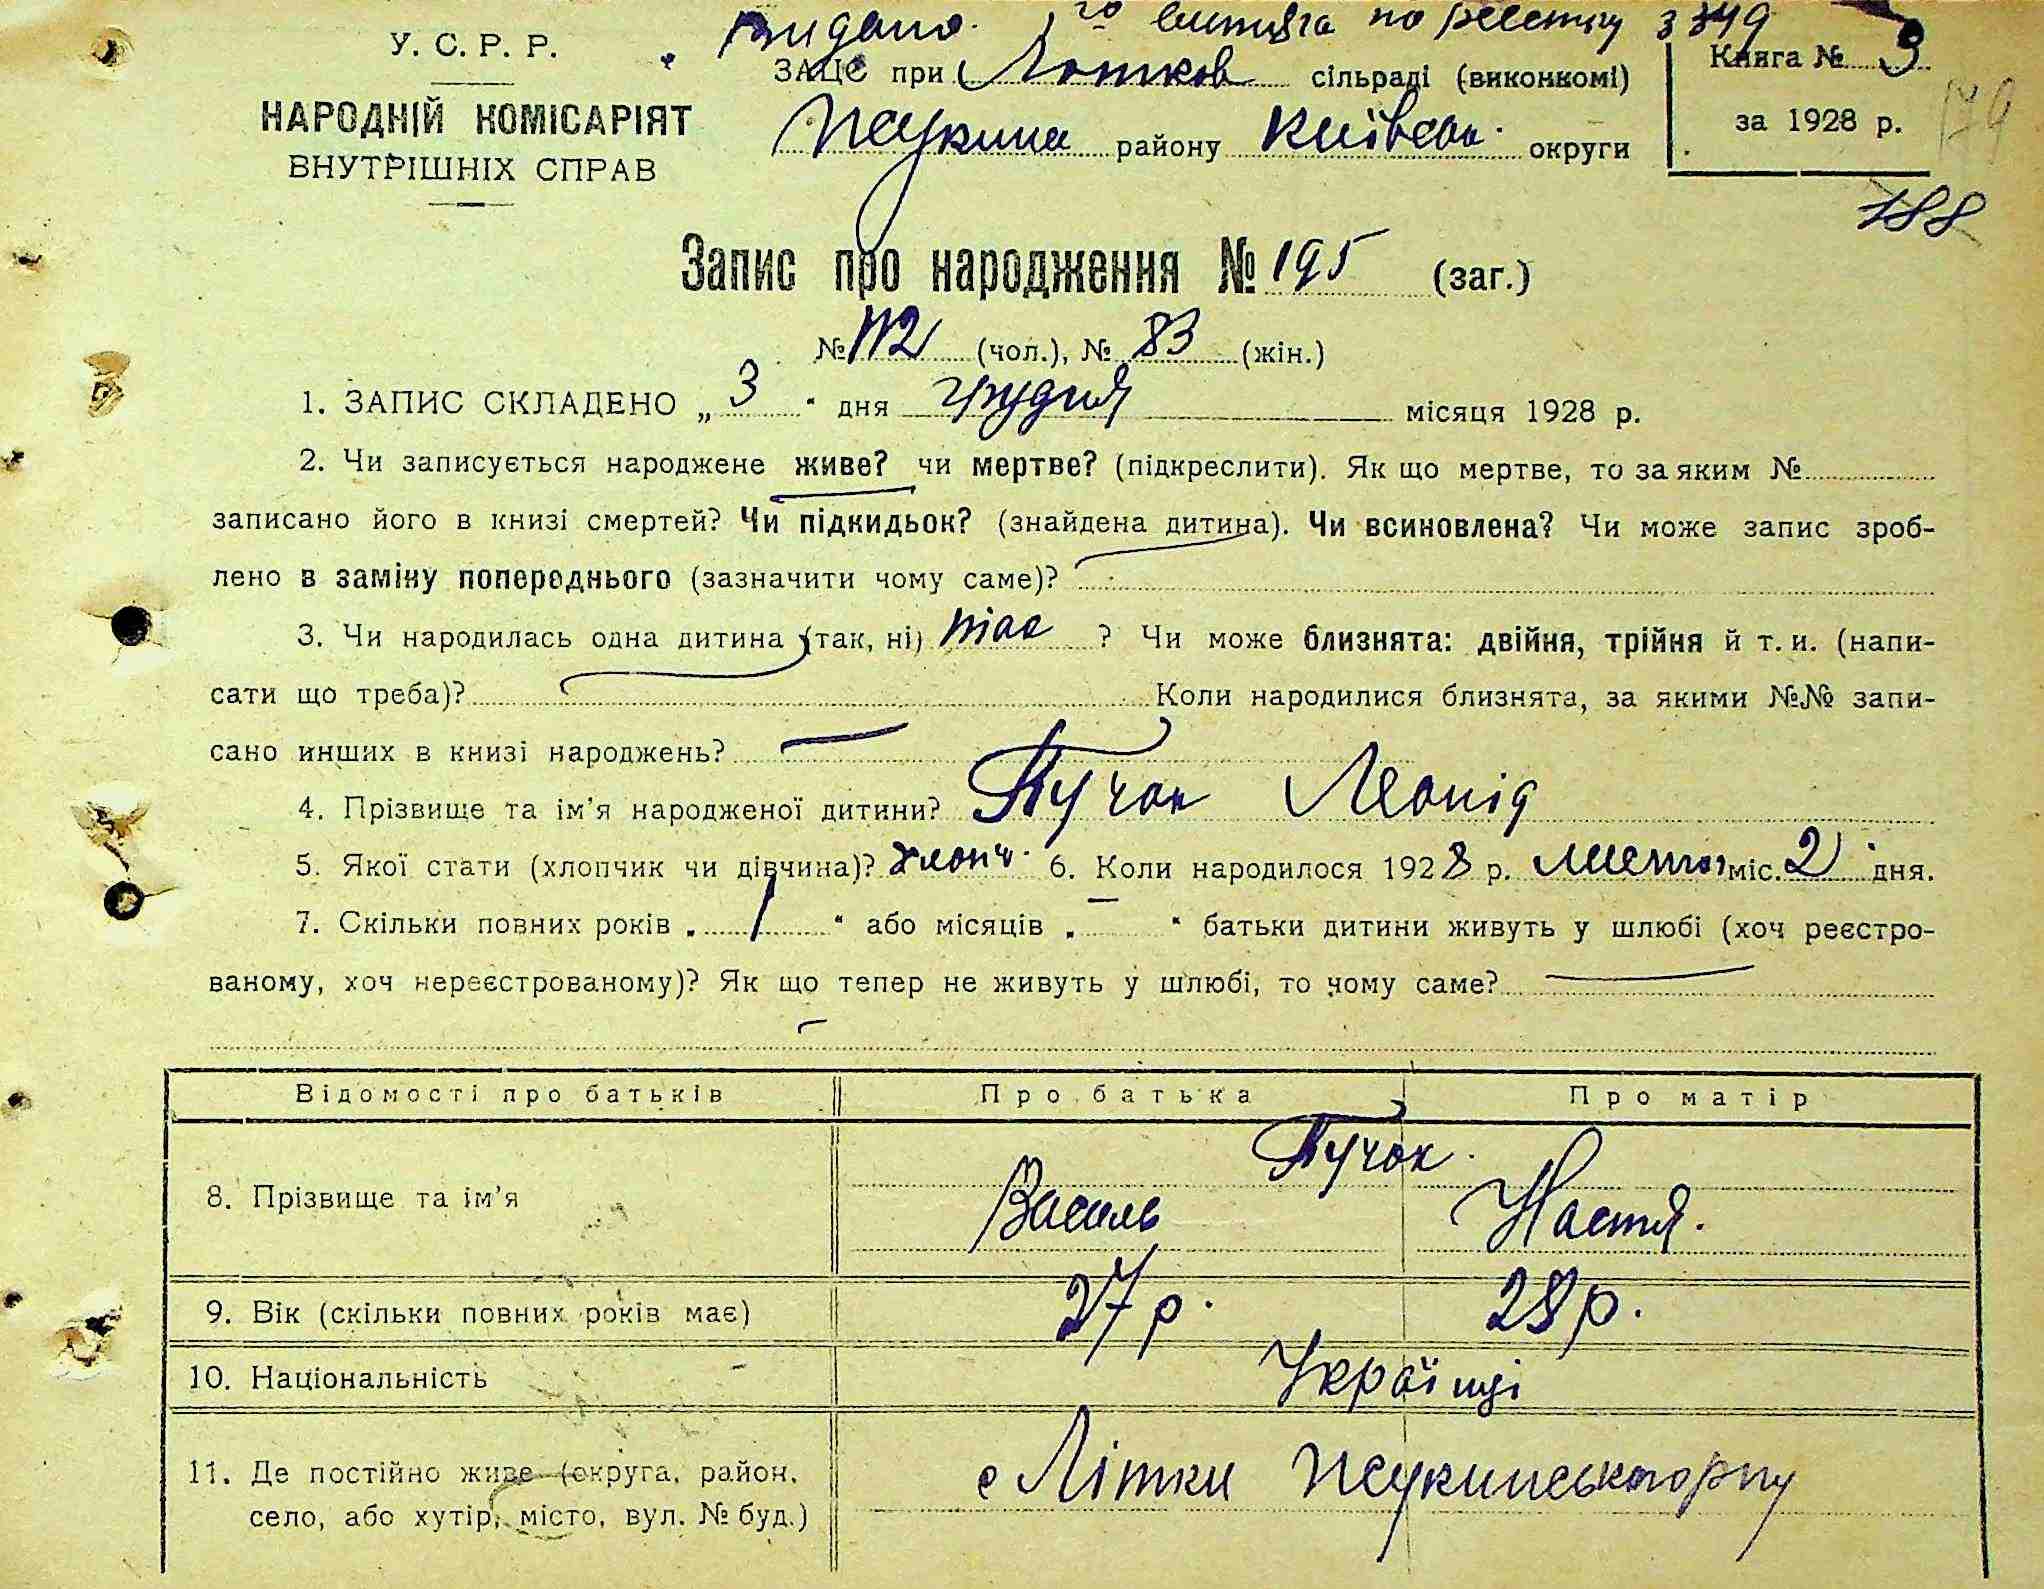 Видано витяга по реєстру 3349
У. С. Р. Р.
НАРОДНІЙ КОМІСАРІЯТ
ВНУТРІШНІХ СПРАВ
ЗАЦС при Літков сільраді (виконкомі)
району Київськ. округи
Книга № 3
за 1928 р.
179
188
Запис про народження № 195 (заг.)
№ 112 (чол.), № 83 (жін.)
1. ЗАПИС СКЛАДЕНО „ 3 “ дня грудня місяця 1928 р.
2. Чи записується народжене живе? чи мертве? (підкреслити). Як що мертве, то за яким №
записано його в книзі смертей? Чи підкидьок? (знайдена дитина). Чи всиновлена? Чи може запис зроб-
лено в заміну попереднього (зазначити чому саме)?
3. Чи народилась одна дитина (так, ні) так ? Чи може близнята: двійня, трійня й т. и. (напи-
сати що треба)? Коли народилися близнята, за якими №№ запи-
сано инших в книзі народжень? —
4. Прізвище та ім’я народженої дитини? Пучок Леонід
5. Якої стати (хлопчик чи дівчина)? хлопч. 6. Коли народилося 1928 р. міс. 2 дня.
7. Скільки повних років „ 1 “ або місяців „ — “ батьки дитини живуть у шлюбі (хоч реєстро-
ваному, хоч нереєстрованому)? Як що тепер не живуть у шлюбі, то чому саме? —
Відомості про батьків Про батька Про матір
8. Прізвище та ім’я Пучок.
Василь Настя.
9. Вік (скільки повних років має) 27 р. 28 р.
10. Національність Українці
11. Де постійно живе (округа, район, с Літки
село, або хутір, місто, вул. № буд.)